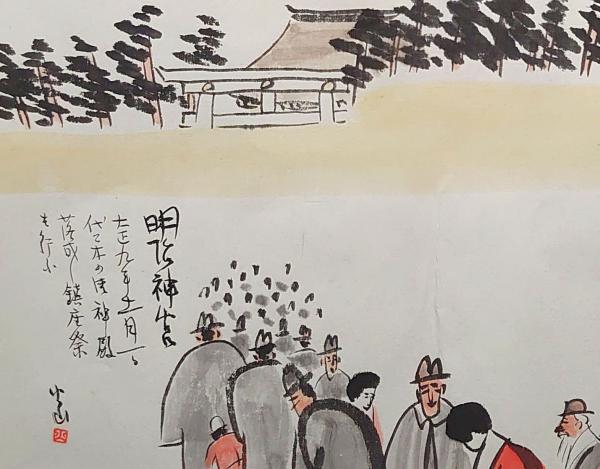 明治神宮
大正九年十一月一日
代々木の住神殿
落成し鎮座祭
を行ふ